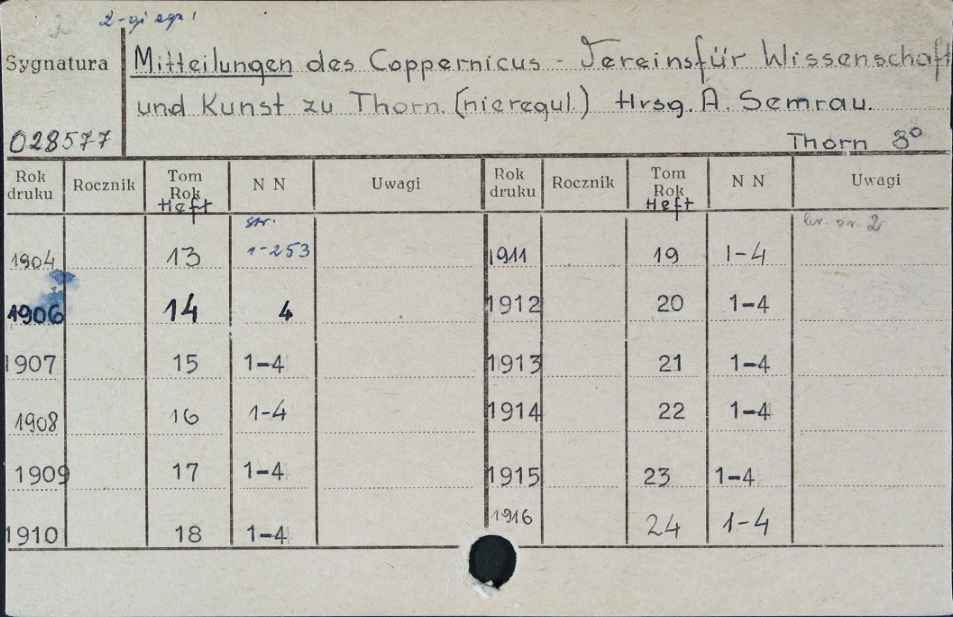 2-gi egz!
Sygnatura
Mitteilungen des Coppernicus - Vereinsfür Wissenschaft
und Kunst zu Thorn. (nieregul.) Hrsg. A. Semrau.
028577
Thorn 8°
Rok druku Rocznik Tom Rok Heft N N Uwagi Rok druku Rocznik Tom Rok Heft N N Uwagi
1904 13 str. 1-253 1911 19 1-4
1906 14 4 1912 20 1-4
1907 15 1-4 1913 21 1-4
1908 16 1-4 1914 22 1-4
1909 17 1-4 1915 23 1-4
1910 18 1-4 1916 24 1-4